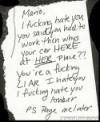 Mario,
I fucking hate you,
you said you had to
work then whys
your car HERE
at HER place??
You're a fucking
LIAR I hate you
I fucking hate you
Amber
PS Page me later